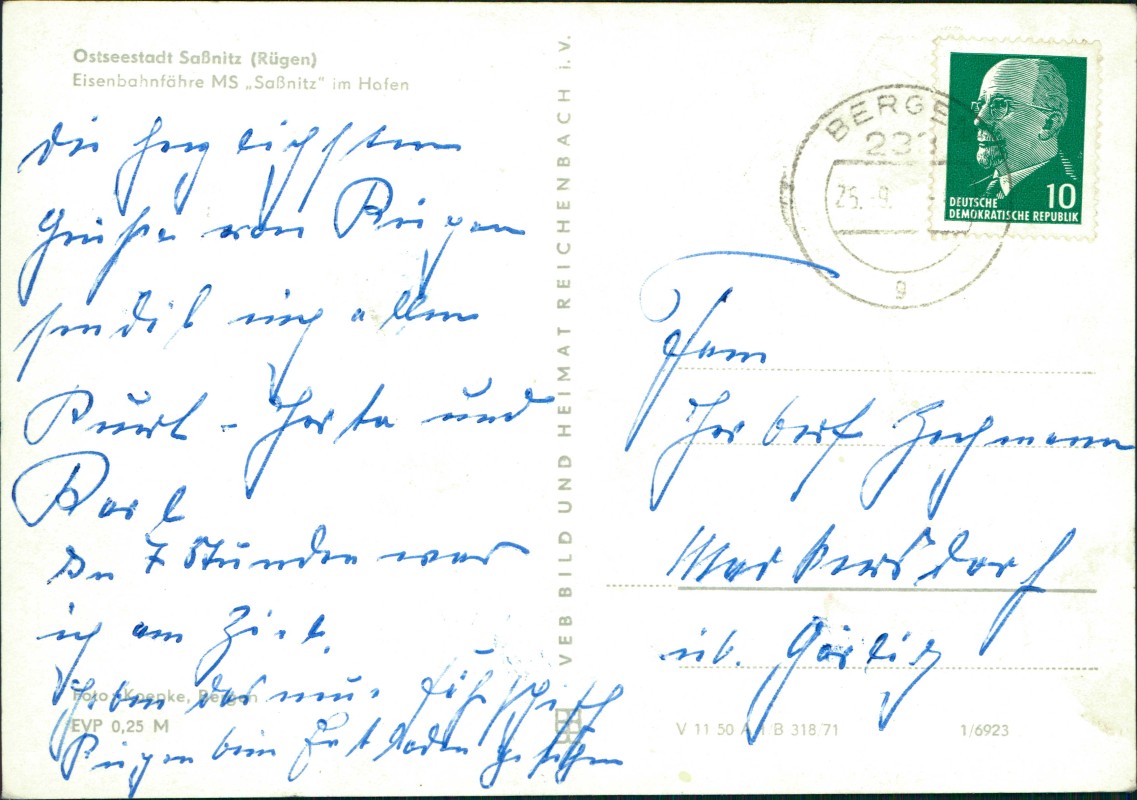 Ostseestadt Saßnitz (Rügen)
Eisenbahnfähre MS „Saßnitz" im Hafen
Die herzlichsten
Grüße von Rügen
sendet euch allen
Kurt - Herta und
Karl
In 7 Stunden war
ich am Ziel.
Haben das neue Fährschiff
Rügen beim Entladen gesehen
Foto: Knepke, Bergen
EVP 0,25 M
VEB BILD UND HEIMAT REICHENBACH i. V.
BERGEN
25.-9.
g
DEUTSCHE
DEMOKRATISCHE REPUBLIK
10
Fam
Herbert
Markersdorf
üb. Görlitz
V 11 50 A 1/B 318/71
1/6923